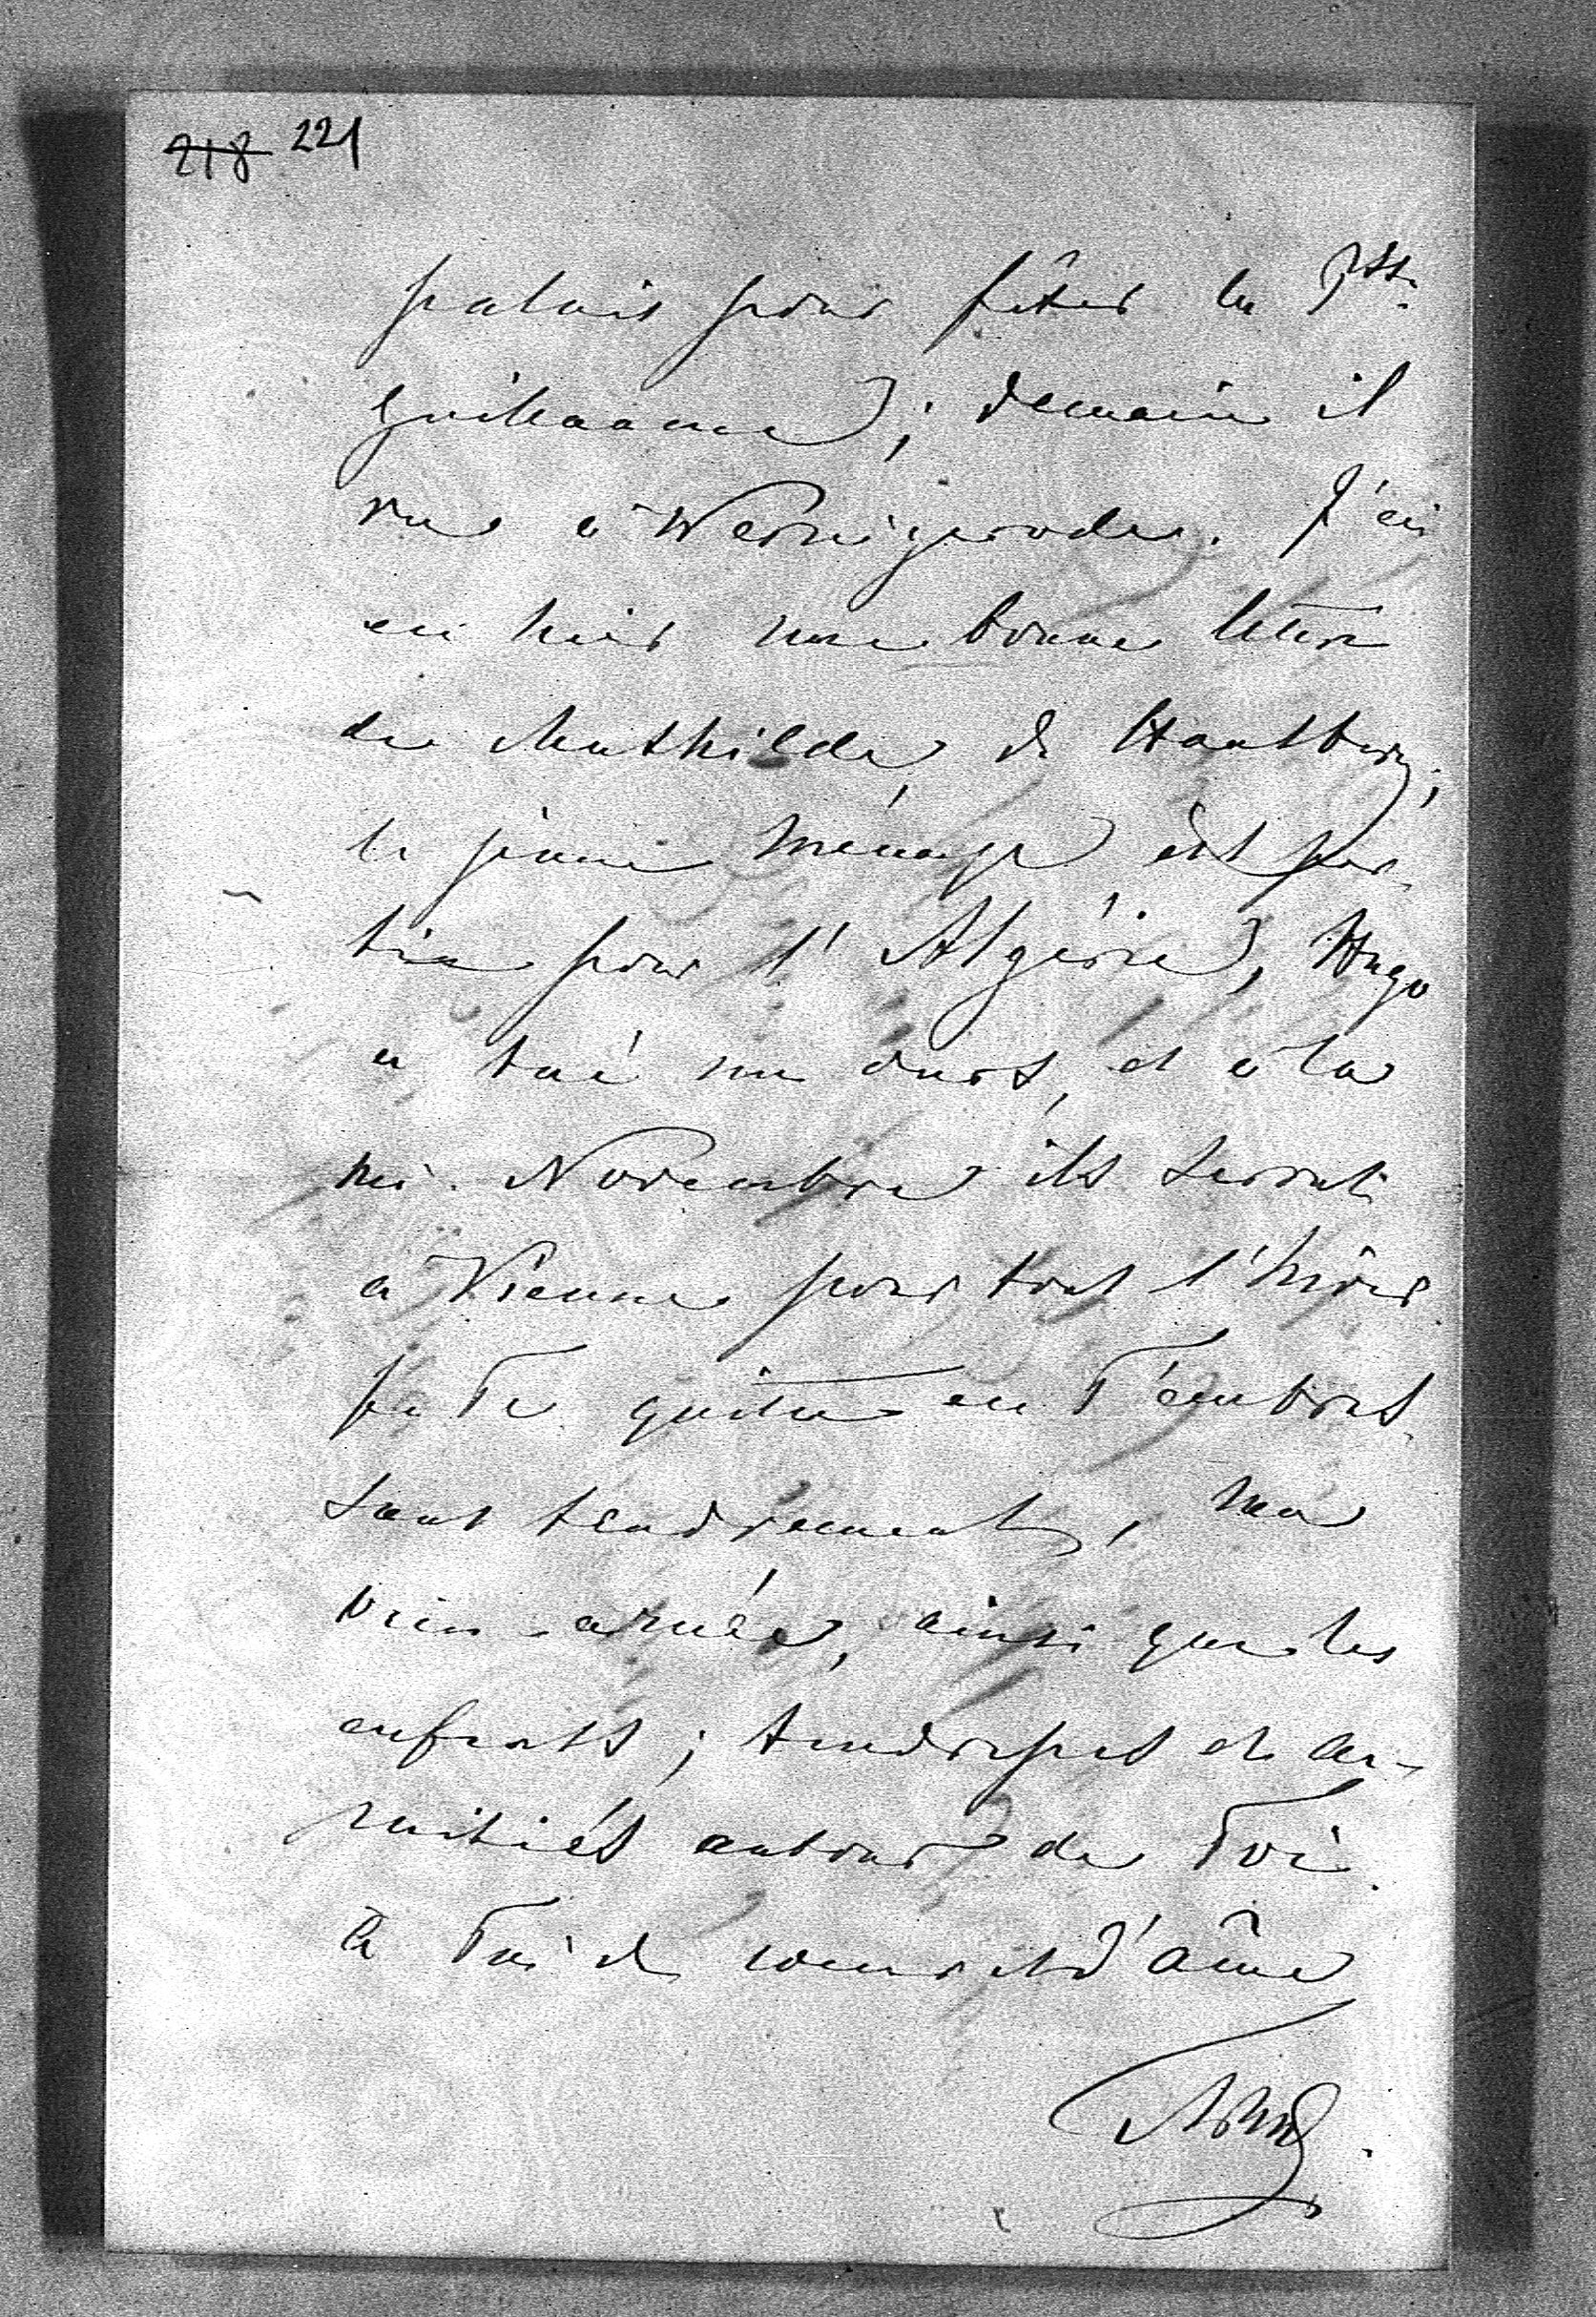 218 221
palais pour fêter la Psse
Guillaume); demain il
va à Wernigerode. J'ai
eu hier une bonne lettre
de Mathilde, de Hautbois;
le jeune ménage est par-
tie pour l'Algérie, Hugo
a tué un ours, et à la
mi-Novembre ils seront
à Vienne pour tout l'hiver.
Je Te quitte en T'embras-
sant tendrement, ma
bien-aimée, ainsi que les
enfants; tendresses et a-
mitiés autour de Toi.
à Toi de coeur et d'âme